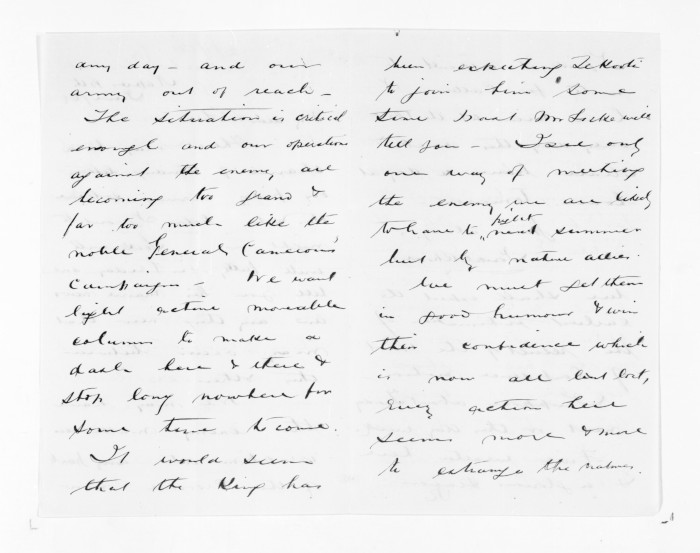 any day - and our
army out of reach -
The situation is critical
enough and our operations
against the enemy are
becoming too grand &
far too much like the
noble General Cameron's
Campaigns - We want
light active moveable
columns to make a
dash here & there &
stop long nowhere for
some time to come.
It would seem
that the King has
been expecting Te Kooti
to join him some
time back Mr Locke will
tell you - I see only
one way of meeting
the enemy we are likely
to have to fight next summer
but by native allies.
We must get them
in good humour & win
their confidence which
is now all but lost,
Every action here
seems more & more
to estrange the natives.